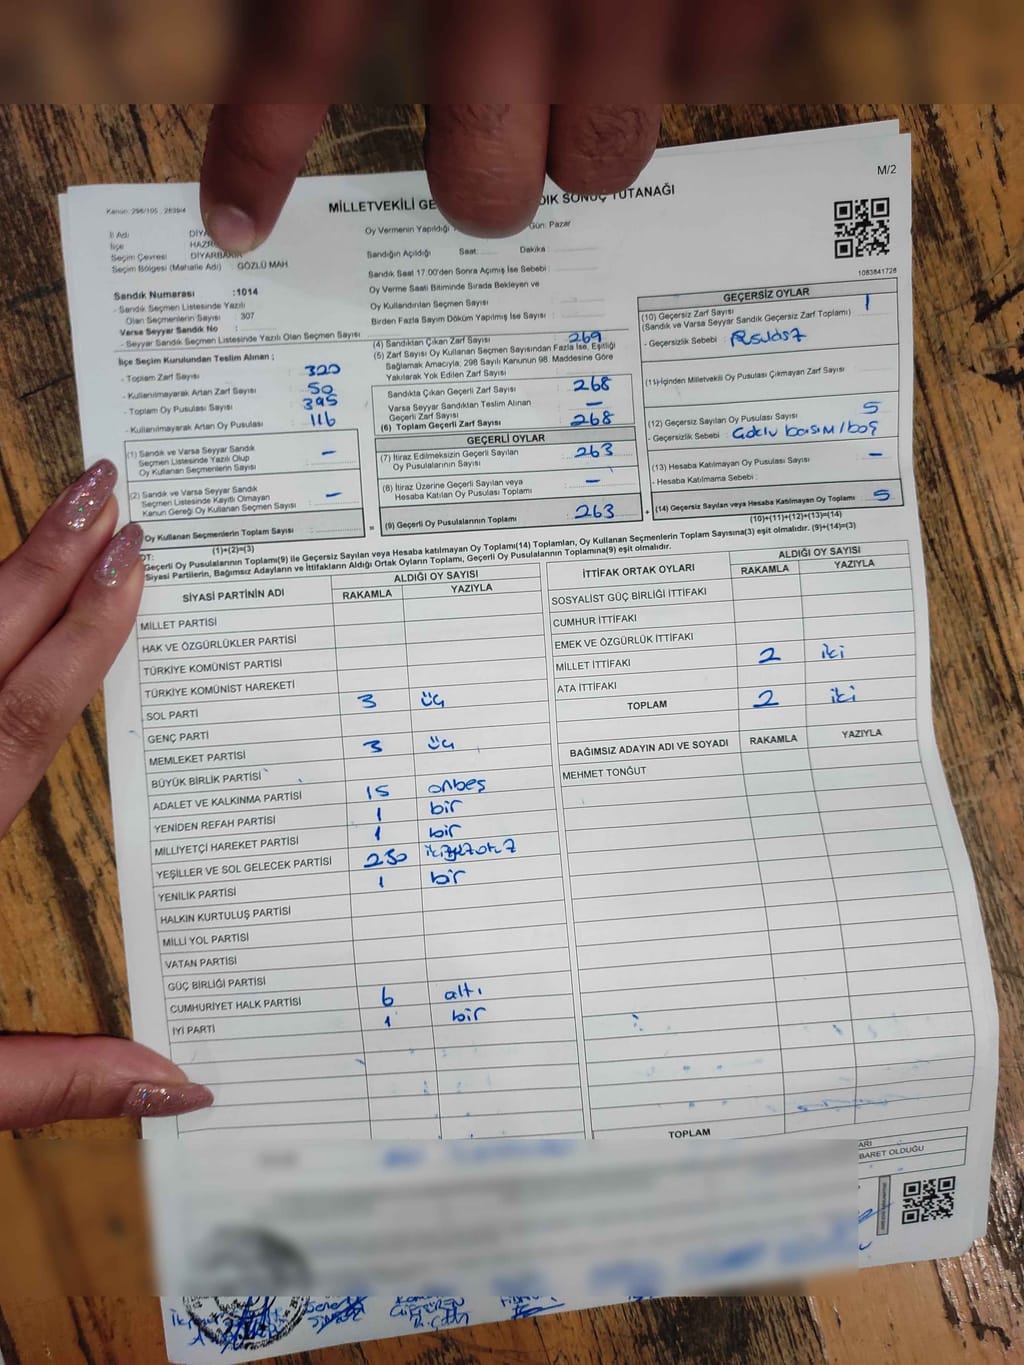 M/2
Kanun: 298/105 , 2839/4
MİLLETVEKİLİ GE DIK SONUÇ TUTANAĞI
1083841728
İl Adı DİYA
İlçe HAZR
Seçim Çevresi DİYARBAKIR
Seçim Bölgesi (Mahalle Adı) : GÖZLÜ MAH.
Oy Vermenin Yapıldığı Gün: Pazar
Sandığın Açıldığı Saat: Dakika :
Sandık Saat 17.00'den Sonra Açılmış İse Sebebi :
Oy Verme Saati Bitiminde Sırada Bekleyen ve
Oy Kullandırılan Seçmen Sayısı :
Birden Fazla Sayım Döküm Yapılmış İse Sayısı :
Sandık Numarası :1014
- Sandık Seçmen Listesinde Yazılı
Olan Seçmenlerin Sayısı : 307
Varsa Seyyar Sandık No :
- Seyyar Sandık Seçmen Listesinde Yazılı Olan Seçmen Sayısı
İlçe Seçim Kurulundan Teslim Alınan ;
- Toplam Zarf Sayısı : 320
- Kullanılmayarak Artan Zarf Sayısı : 50
- Toplam Oy Pusulası Sayısı : 395
- Kullanılmayarak Artan Oy Pusulası : 116
(1) Sandık ve Varsa Seyyar Sandık
Seçmen Listesinde Yazılı Olup
Oy Kullanan Seçmenlerin Sayısı : -
(2) Sandık ve Varsa Seyyar Sandık
Seçmen Listesinde Kayıtlı Olmayan
Kanun Gereği Oy Kullanan Seçmen Sayısı : -
Oy Kullanan Seçmenlerin Toplam Sayısı :
(1)+(2)=(3)
(4) Sandıktan Çıkan Zarf Sayısı : 269
(5) Zarf Sayısı Oy Kullanan Seçmen Sayısından Fazla İse, Eşitliği
Sağlamak Amacıyla, 298 Sayılı Kanunun 98. Maddesine Göre
Yakılarak Yok Edilen Zarf Sayısı :
Sandıkta Çıkan Geçerli Zarf Sayısı : 268
Varsa Seyyar Sandıktan Teslim Alınan
Geçerli Zarf Sayısı : -
(6) Toplam Geçerli Zarf Sayısı : 268
GEÇERLİ OYLAR
(7) İtiraz Edilmeksizin Geçerli Sayılan
Oy Pusulalarının Sayısı : 263
(8) İtiraz Üzerine Geçerli Sayılan veya
Hesaba Katılan Oy Pusulası Toplamı : -
= (9) Geçerli Oy Pusulalarının Toplamı : 263
GEÇERSİZ OYLAR
(10) Geçersiz Zarf Sayısı : 1
(Sandık ve Varsa Seyyar Sandık Geçersiz Zarf Toplamı)
- Geçersizlik Sebebi :
(11) İçinden Milletvekili Oy Pusulası Çıkmayan Zarf Sayısı
(12) Geçersiz Sayılan Oy Pusulası Sayısı : 5
- Geçersizlik Sebebi : Çoklu basım/boş
(13) Hesaba Katılmayan Oy Pusulası Sayısı : -
- Hesaba Katılmama Sebebi :
+ (14) Geçersiz Sayılan veya Hesaba Katılmayan Oy Toplamı : 5
(10)+(11)+(12)+(13)=(14)
OT:
Geçerli Oy Pusulalarının Toplamı(9) ile Geçersiz Sayılan veya Hesaba katılmayan Oy Toplamı(14) Toplamları, Oy Kullanan Seçmenlerin Toplam Sayısına(3) eşit olmalıdır. (9)+(14)=(3)
Siyasi Partilerin, Bağımsız Adayların ve İttifakların Aldığı Ortak Oyların Toplamı, Geçerli Oy Pusulalarının Toplamına(9) eşit olmalıdır.
SİYASİ PARTİNİN ADI ALDIĞI OY SAYISI
RAKAMLA YAZIYLA
MİLLET PARTİSİ
HAK VE ÖZGÜRLÜKLER PARTİSİ
TÜRKİYE KOMÜNİST PARTİSİ
TÜRKİYE KOMÜNİST HAREKETİ
SOL PARTİ 3 üç
GENÇ PARTİ
MEMLEKET PARTİSİ 3 üç
BÜYÜK BİRLİK PARTİSİ
ADALET VE KALKINMA PARTİSİ 15 onbeş
YENİDEN REFAH PARTİSİ 1 bir
MİLLİYETÇİ HAREKET PARTİSİ 1 bir
YEŞİLLER VE SOL GELECEK PARTİSİ 230 ikiyüzotuz
YENİLİK PARTİSİ 1 bir
HALKIN KURTULUŞ PARTİSİ
MİLLİ YOL PARTİSİ
VATAN PARTİSİ
GÜÇ BİRLİĞİ PARTİSİ
CUMHURİYET HALK PARTİSİ 6 altı
İYİ PARTİ 1 bir
İTTİFAK ORTAK OYLARI ALDIĞI OY SAYISI
RAKAMLA YAZIYLA
SOSYALİST GÜÇ BİRLİĞİ İTTİFAKI
CUMHUR İTTİFAKI
EMEK VE ÖZGÜRLÜK İTTİFAKI
MİLLET İTTİFAKI 2 iki
ATA İTTİFAKI
TOPLAM 2 iki
BAĞIMSIZ ADAYIN ADI VE SOYADI RAKAMLA YAZIYLA
MEHMET TONĞUT
TOPLAM
ARI
BARET OLDUĞU